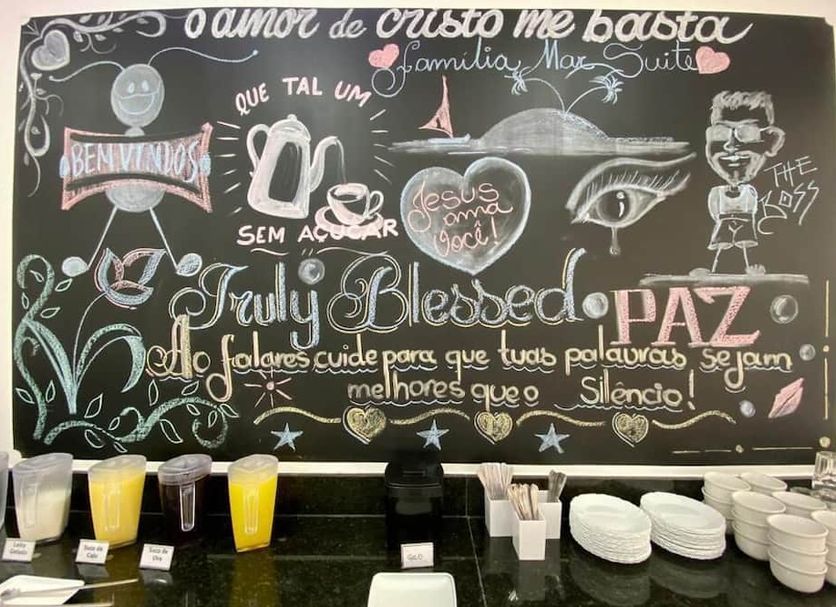 o amor de cristo me basta
família Mar Suite
QUE TAL UM
BEM VINDOS
SEM AÇUCAR
Jesus
ama
Você!
THE
BOSS
Truly Blessed
PAZ
Ao falares, cuide para que tuas palavras sejam
melhores que o Silêncio!
Leite
Gelado
Suco de
Caju
Suco de
Uva
GELO